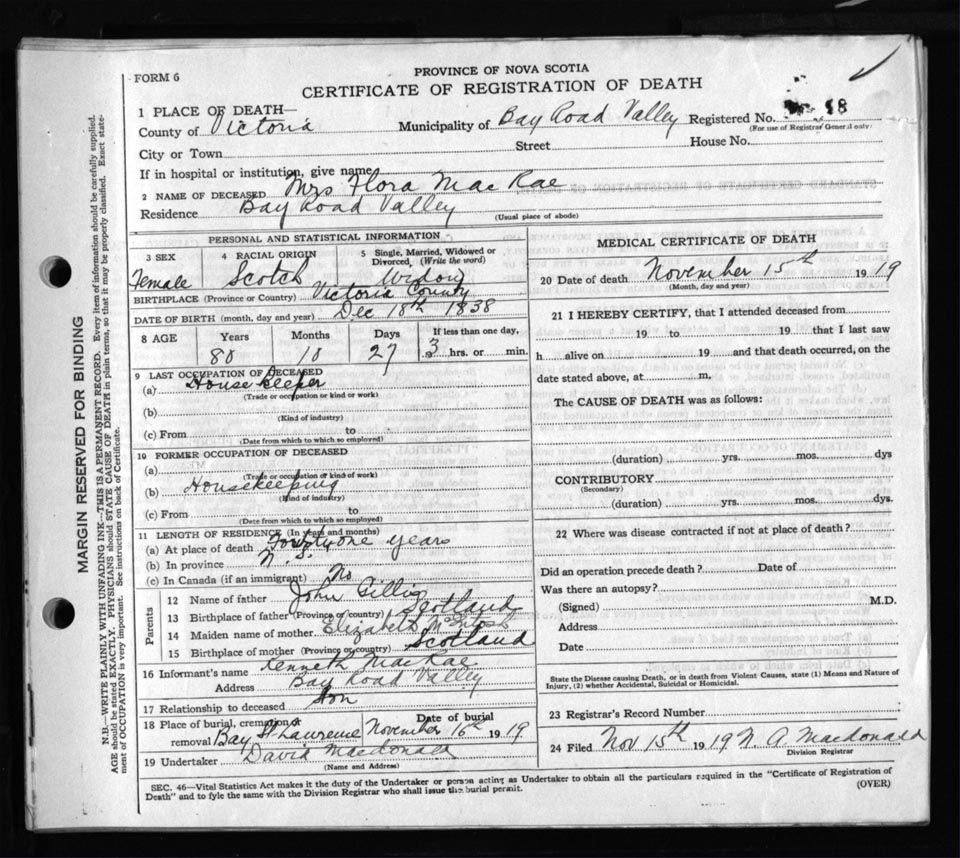 FORM 6
PROVINCE OF NOVA SCOTIA
CERTIFICATE OF REGISTRATION OF DEATH
1 PLACE OF DEATH—
County of Victoria Municipality of Bay Road Valley Registered No. 18
(For use of Registrar General only)
City or Town Street House No.
If in hospital or institution, give name
2 NAME OF DECEASED Mrs Flora MacRae
Residence Bay Road Valley
(Usual place of abode)
PERSONAL AND STATISTICAL INFORMATION
3 SEX 4 RACIAL ORIGIN 5 Single, Married, Widowed or Divorced, (Write the word)
Female Scotch Widow
BIRTHPLACE (Province or Country) Victoria County
DATE OF BIRTH (month, day and year) Dec 18th 1838
8 AGE Years Months Days If less than one day,
80 10 27 3 hrs. or min.
9 LAST OCCUPATION OF DECEASED
(a) House Keeper
(Trade or occupation or kind or work)
(b)
(Kind of industry)
(c) From to
(Date from which to which so employed)
10 FORMER OCCUPATION OF DECEASED
(a)
(Trade or occupation or kind of work)
(b) Housekeeping
(Kind of industry)
(c) From to
(Date from which to which so employed)
11 LENGTH OF RESIDENCE (In years and months)
(a) At place of death Fourtyone years
(b) In province N. S.
(c) In Canada (if an immigrant) No
Parents
12 Name of father John Gillis
13 Birthplace of father (Province or country) Scotland
14 Maiden name of mother Elizabeth McIntosh
15 Birthplace of mother (Province or country) Scotland
16 Informant's name Kenneth MacRae
Address Bay Road Valley
17 Relationship to deceased Son
18 Place of burial, cremation or removal Bay St Lawrence Date of burial November 16th 1919
19 Undertaker David Macdonald
(Name and Address)
MEDICAL CERTIFICATE OF DEATH
20 Date of death November 15th 1919
(Month, day and year)
21 I HEREBY CERTIFY, that I attended deceased from
19 to 19 that I last saw
h alive on 19 and that death occurred, on the
date stated above, at m.
The CAUSE OF DEATH was as follows:
(duration) yrs. mos. dys
CONTRIBUTORY
(Secondary)
(duration) yrs. mos. dys.
22 Where was disease contracted if not at place of death?
Did an operation precede death? Date of
Was there an autopsy?
(Signed) M.D.
Address
Date
State the Disease causing Death, or in death from Violent Causes, state (1) Means and Nature of
Injury, (2) whether Accidental, Suicidal or Homicidal.
23 Registrar's Record Number
24 Filed Nov 15th 1919 N. A. Macdonald
Division Registrar
SEC. 46—Vital Statistics Act makes it the duty of the Undertaker or person acting as Undertaker to obtain all the particulars required in the "Certificate of Registration of
Death" and to fyle the same with the Division Registrar who shall issue the burial permit. (OVER)
MARGIN RESERVED FOR BINDING
N.B.—WRITE PLAINLY WITH UNFADING INK—THIS IS A PERMANENT RECORD. Every item of information should be carefully supplied.
AGE should be stated EXACTLY. PHYSICIANS should STATE CAUSE OF DEATH in plain terms, so that it may be properly classified. Exact state-
ment of OCCUPATION is very important. See instructions on back of Certificate.